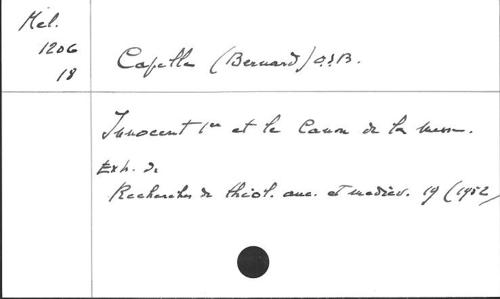 Mél.
1206
18
Capelle (Bernard) O.S.B.
Innocent 1er et le Canon de la messe.
Extr. de
Recherches de théol. anc. et médiév. 19 (1952)